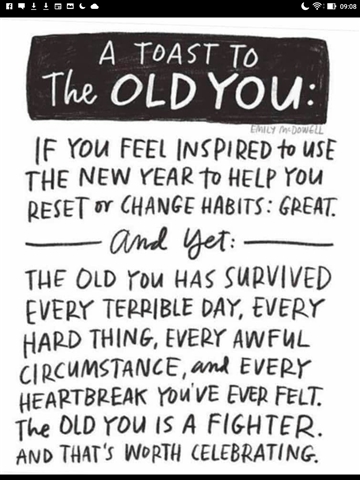 09:08
A TOAST TO
The OLD YOU:
EMILY McDOWELL
IF YOU FEEL INSPIRED to USE
THE NEW YEAR to HELP YOU
RESET or CHANGE HABITS: GREAT.
and yet:
THE OLD YOU HAS SURVIVED
EVERY TERRIBLE DAY, EVERY
HARD THING, EVERY AWFUL
CIRCUMSTANCE, and EVERY
HEARTBREAK YOU'VE EVER FELT.
The OLD YOU IS A FIGHTER.
AND THAT'S WORTH CELEBRATING.